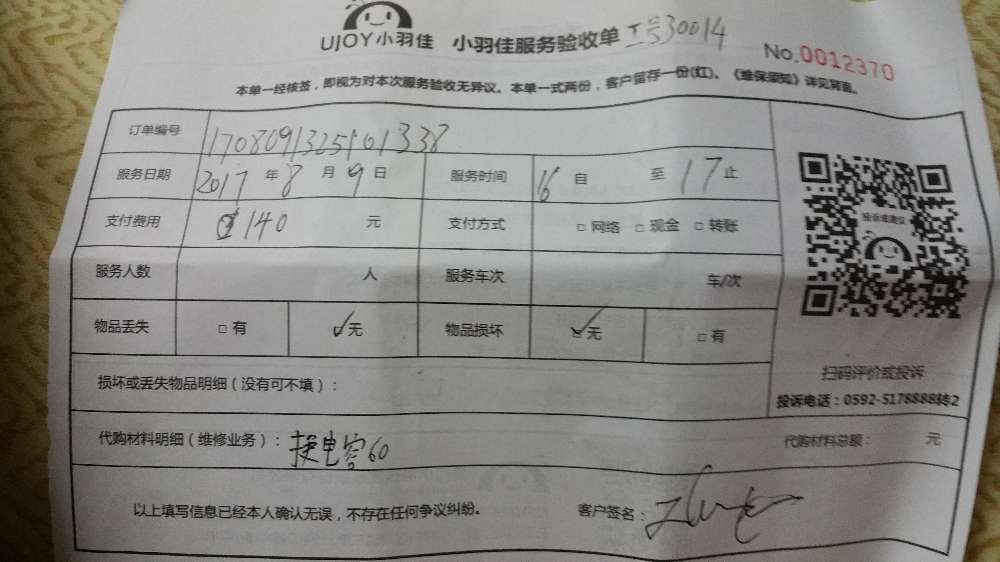 UJOY小羽佳 小羽佳服务验收单 工号30014
No.0012370
本单一经核签，即视为对本次服务验收无异议。本单一式两份，客户留存一份(红)。《维保须知》详见背面。
订单编号 1708091325101338
服务日期 2017年8月9日 服务时间 16自 至17止
支付费用 140 元 支付方式 □网络 □现金 □转账
投诉或建议
服务人数 人 服务车次 车/次
物品丢失 □有 ✓无 物品损坏 ✓无 □有
扫码评价或投诉
损坏或丢失物品明细（没有可不填）：
投诉电话：0592-5178888转2
代购材料明细（维修业务）：换电容60 代购材料总额： 元
以上填写信息已经本人确认无误，不存在任何争议纠纷。 客户签名：